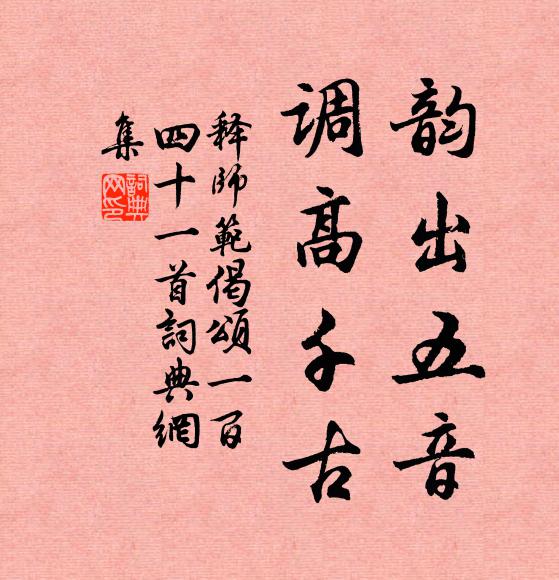 韵出五音
调高千古
释師範偈頌一百
四十一首詞典網
集
詞典
网印